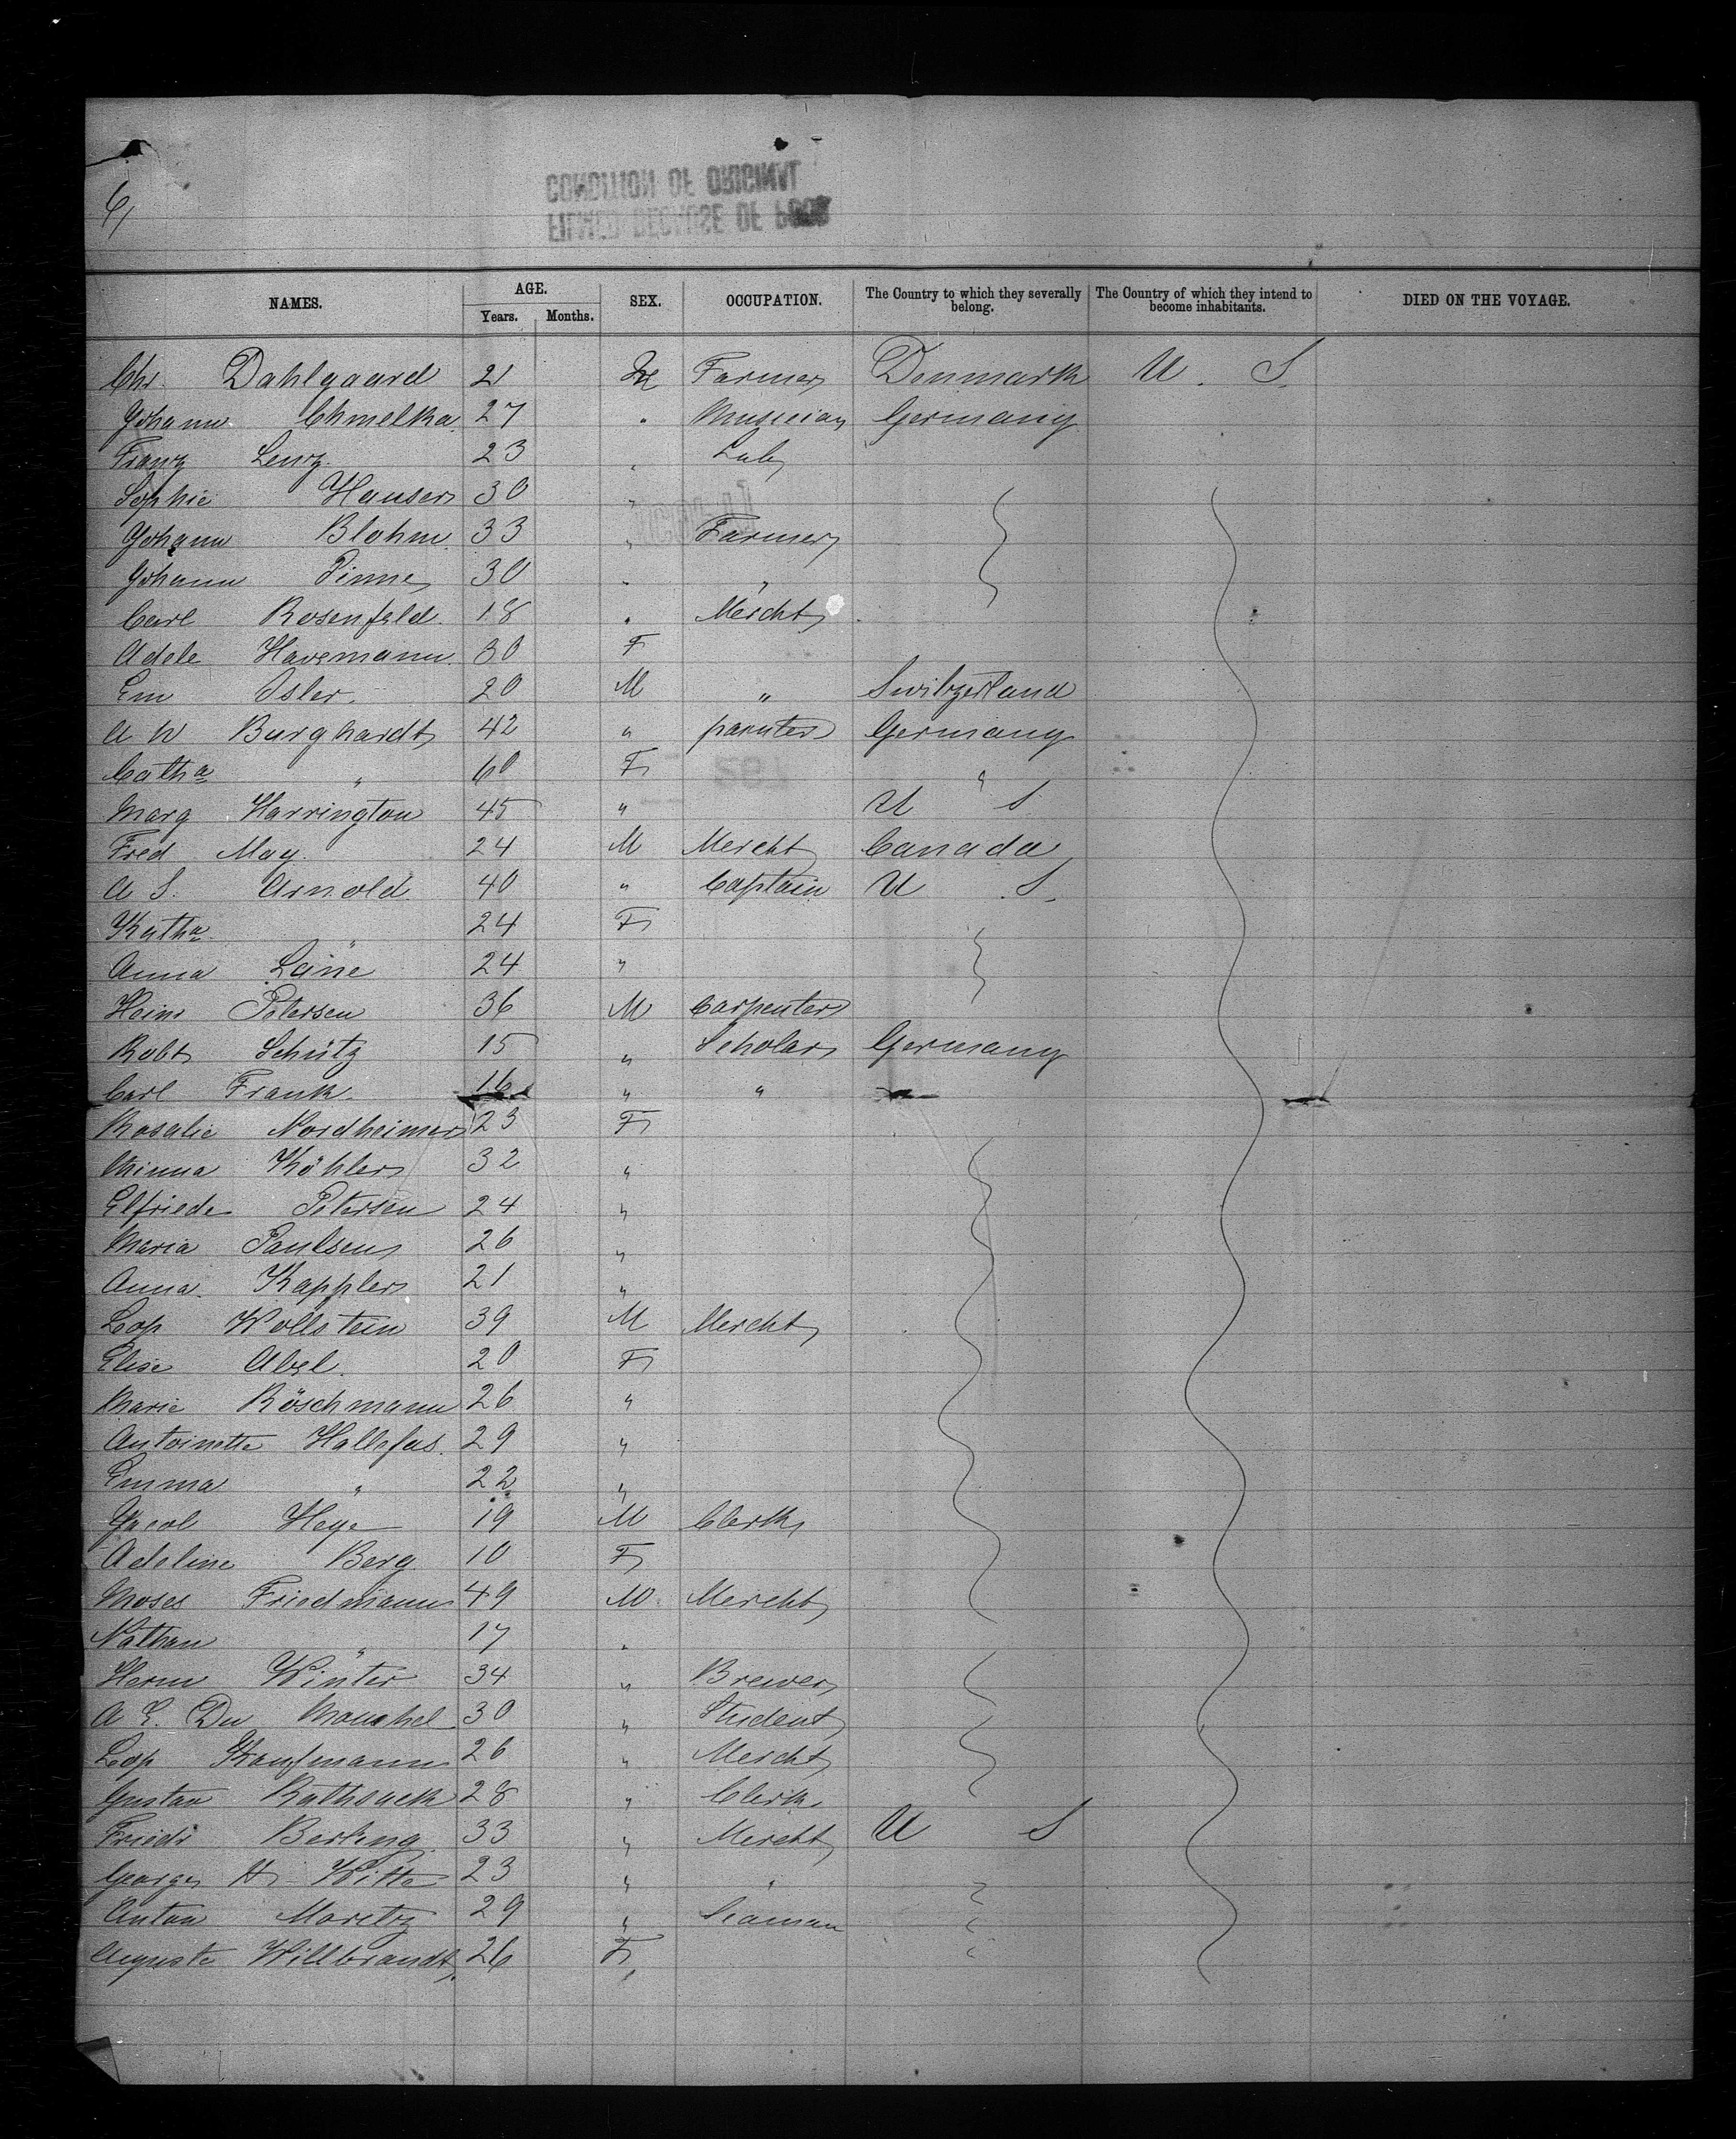 6/
NAMES. AGE. SEX. OCCUPATION. The Country to which they severally belong. The Country of which they intend to become inhabitants. DIED ON THE VOYAGE.
Years. Months.
Chr. Dahlgaard 21 M Farmer Denmark U. S.
Johann Chmelka 27 " Musician Germany
Franz Lenz 23 "
Sophie Hauser 30 "
Johann Blohm 33 " Farmer
Johann Pinne 30 " "
Carl Rosenfeld 18 " Mercht
Adele Havemann 30 F
Em Isler 20 M " Switzerland
A W Burghardt 42 " painter Germany
Catha " 60 F "
Marg Harrington 45 " U S
Fred May 24 M Mercht Canada
A S. Arnold 40 " Captain U S.
Katha " 24 F
Anna Leine 24 "
Heinr Petersen 36 M Carpenter
Robt Schütz 15 " Scholar Germany
Carl Frank 16 " "
Rosalie Nordheimer 23 F
Minna Köhler 32 "
Elfriede Petersen 24 "
Maria Paulsen 26 "
Anna Kappler 21 "
Leop Wollstein 39 M Mercht
Elise Abel 20 F
Marie Röschmann 26 "
Antoinette Hallefas 29 "
Emma " 22 "
Jacob Heye 19 M Clerk
Adeline Berg 10 F
Moses Friedmann 49 M Mercht
Nathan " 17 "
Herm Winter 34 " Brewer
A E. Du 30 " Student
Leop Kaufmann 26 " Mercht
Gustav Rathsack 28 " Clerk
Friedr Berking 33 " Mercht U S
George H Witte 23 " "
Anton Moritz 29 " Seaman
Auguste Willbrandt 26 F